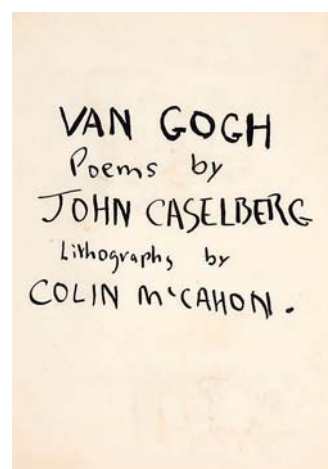 VAN GOGH
Poems by
JOHN CASELBERG
Lithographs by
COLIN McCAHON.